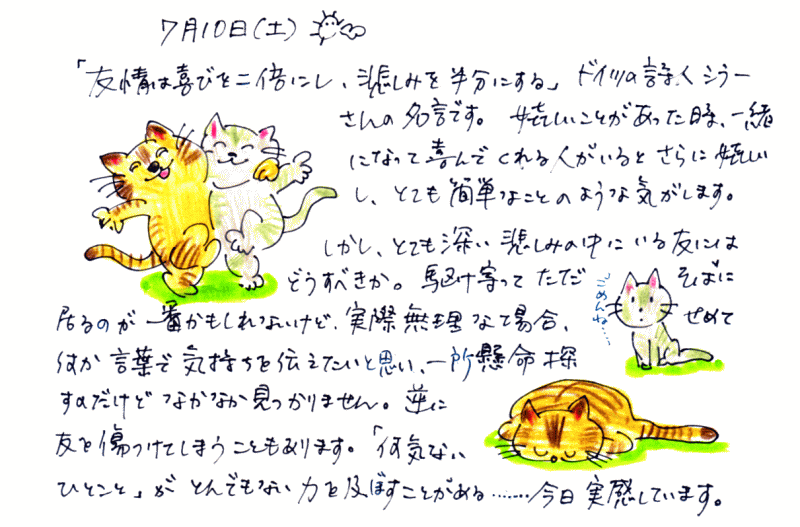 7月10日(土)
「友情は喜びを二倍にし、悲しみを半分にする」ドイツの詩人シラー
さんの名言です。嬉しいことがあった時、一緒
になって喜んでくれる人がいるとさらに嬉しい
し、とても簡単なことのような気がします。
しかし、とても深い悲しみの中にいる友には
どうすべきか。駆け寄ってただそばに
居るのが一番かもしれないけど、実際無理な場合、せめて
何か言葉で気持ちを伝えたいと思い、一所懸命探
すのだけどなかなか見つかりません。逆に
友を傷つけてしまうこともあります。「何気ない
ひとこと」がとんでもない力を及ぼすことがある……今日実感しています。
ごめんね…